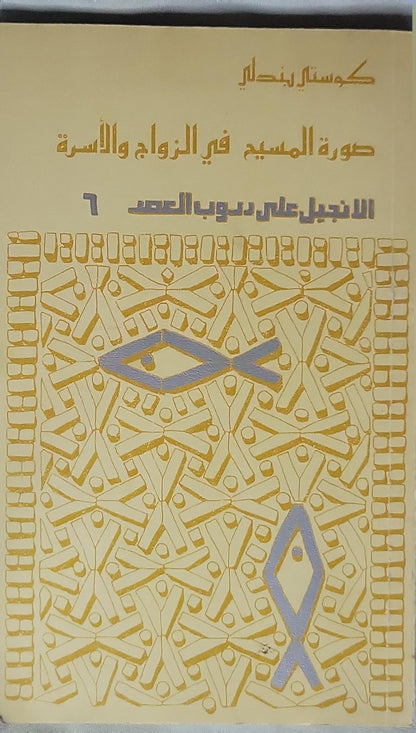 كوستي بندلي
صورة المسيح في الزواج والأسرة
الانجيل على دروب العصر ٦